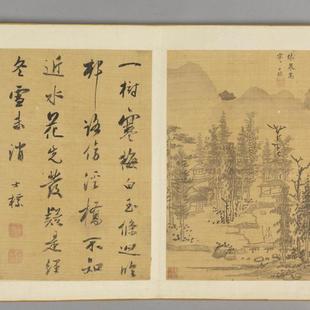 一樹寒梅白玉條迥臨
邨路傍溪橋不知
近水花先發疑是經
冬雪未消 士標